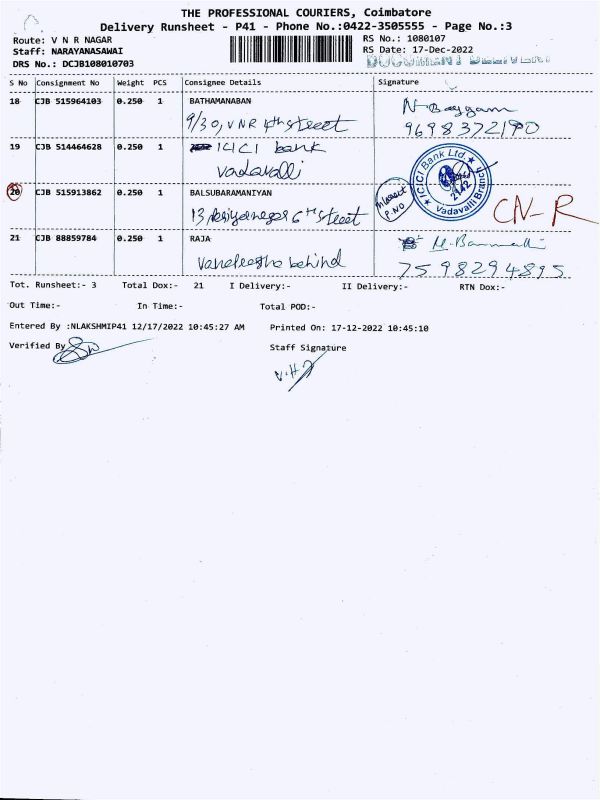 THE PROFESSIONAL COURIERS, Coimbatore
Delivery Runsheet - P41 - Phone No.:0422-3505555 - Page No.:3
Route: V N R NAGAR
RS No.: 1080107
Staff: NARAYANASAWAI
RS Date: 17-Dec-2022
DRS No.: DCJB108010703
DOCUMENT DELIVERY
S No Consignment No Weight PCS Consignee Details Signature
18 CJB 515964103 0.250 1 BATHAMANABAN
9/30, V N R 4th street
9698372190
19 CJB 514464628 0.250 1 ICICI bank
Vadavalli
ICICI Bank Ltd. ★ Vadavalli Branch ★
20 CJB 515913862 0.250 1 BALSUBARAMANIYAN
13, 6TH Street
P.NO
CN-R
21 CJB 88859784 0.250 1 RAJA
behind
7598294895
Tot. Runsheet:- 3 Total Dox:- 21 I Delivery:- II Delivery:- RTN Dox:-
Out Time:- In Time:- Total POD:-
Entered By :NLAKSHMIP41 12/17/2022 10:45:27 AM Printed On: 17-12-2022 10:45:10
Verified By
Staff Signature